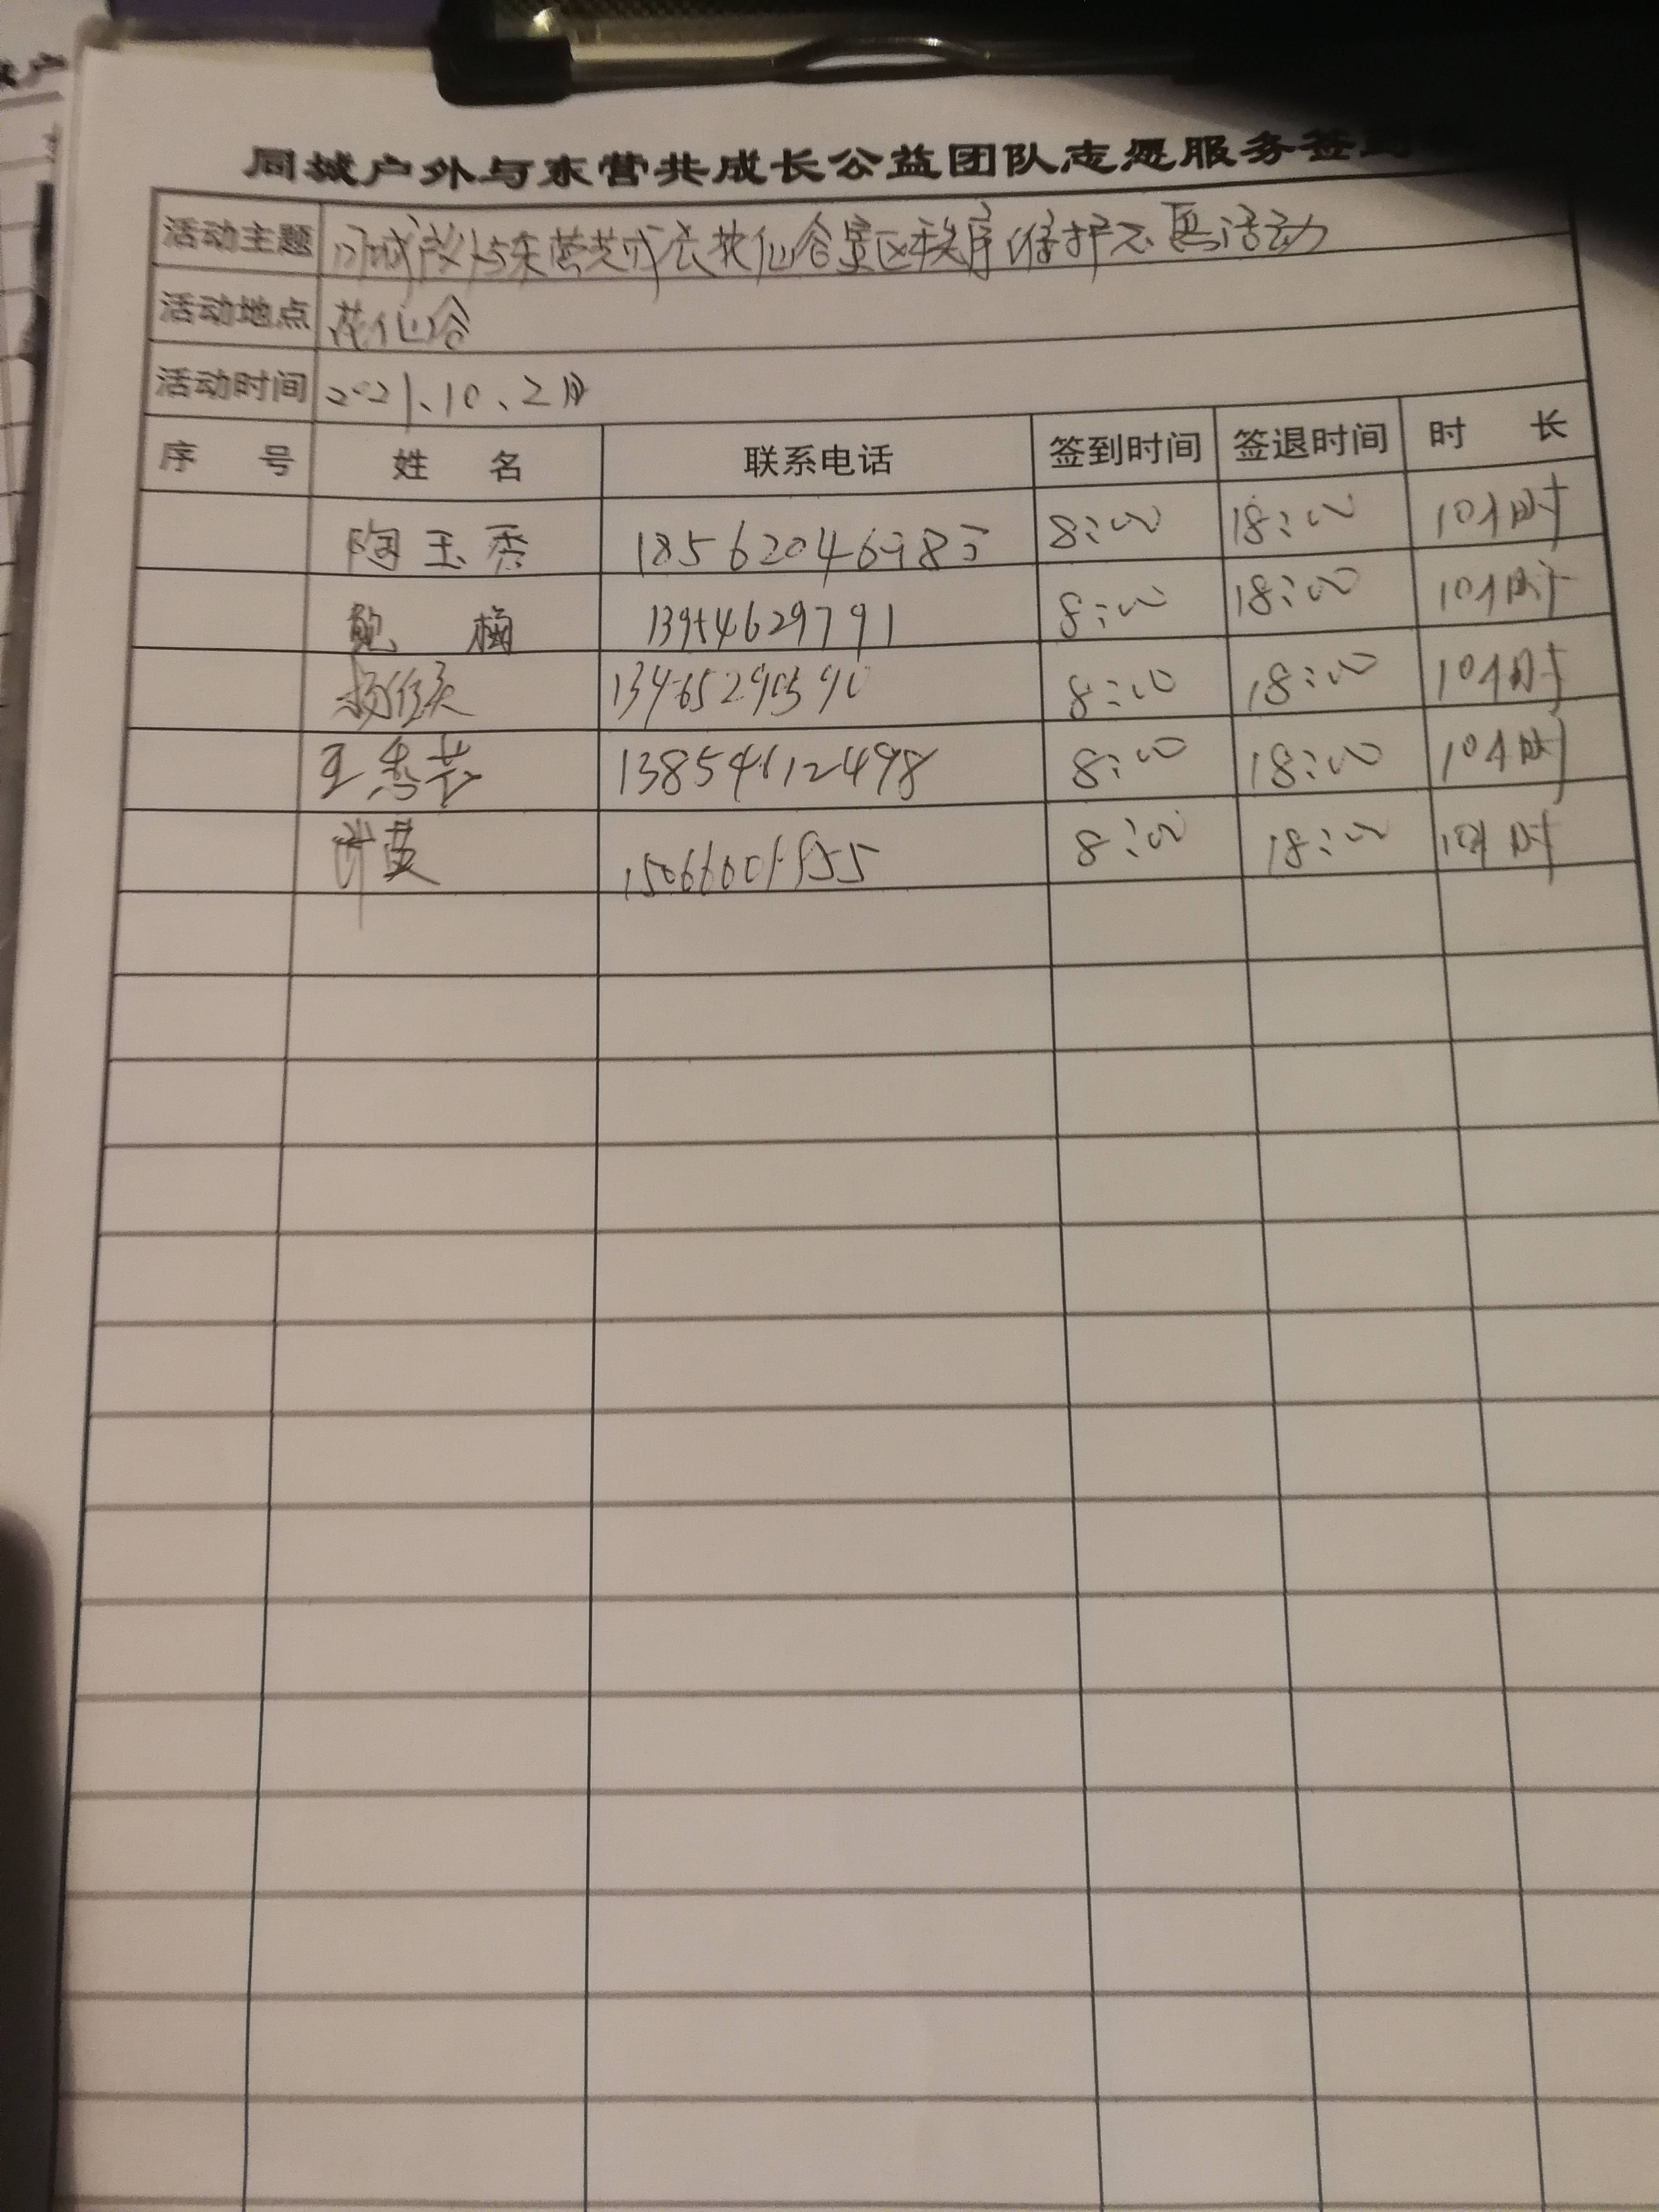 同城户外与东营共成长公益团队志愿服务签到
活动主题 同城户外与东营共成长花仙谷景区秩序维护志愿活动
活动地点 花仙谷
活动时间 2021、10、2日
序 号 姓 名 联系电话 签到时间 签退时间 时 长
陶玉秀 8:00 18:00 10小时
鲍 梅 13954629791 8:00 18:00 10小时
8:00 18:00 10小时
王秀芸 8:00 18:00 10小时
8:00 18:00 10小时